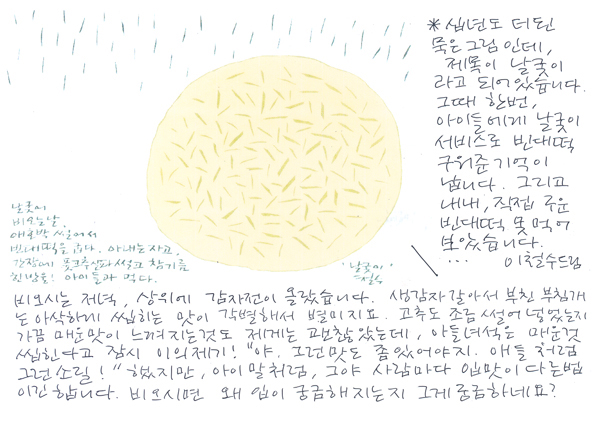 * 십년도 더 된
묵은 그림인데,
제목이 날궂이
라고 되어있습니다.
그때 한번,
아이들에게 날궂이
서비스로 빈대떡
구워준 기억이
납니다. 그리고
내내, 직접 구운
빈대떡 못 먹어
보았습니다.
... 이철수드림
날궂이
비오는날,
애호박 썰어서
빈대떡을 굽다. 아내는 자고,
간장에 풋고추 썰고 참기름
한방울! 아이들과 먹다.
'날궂이'
철수
비오시는 저녁, 상위에 감자전이 올랐습니다. 생감자 갈아서 부친 부침개
는 아삭하게 씹히는 맛이 각별해서 별미지요. 고추도 조금 썰어 넣었는지
가끔 매운맛이 느껴지는것도 제게는 괜찮았는데, 아들녀석은 매운것
씹힌다고 잠시 이의제기! "야. 그런맛도 좀 있어야지. 애들처럼
그런소릴!" 했지만, 아이 말처럼, 그야 사람마다 입맛이 다른법
이긴 합니다. 비오시면 왜 입이 궁금해지는지 그게 궁금하네요?